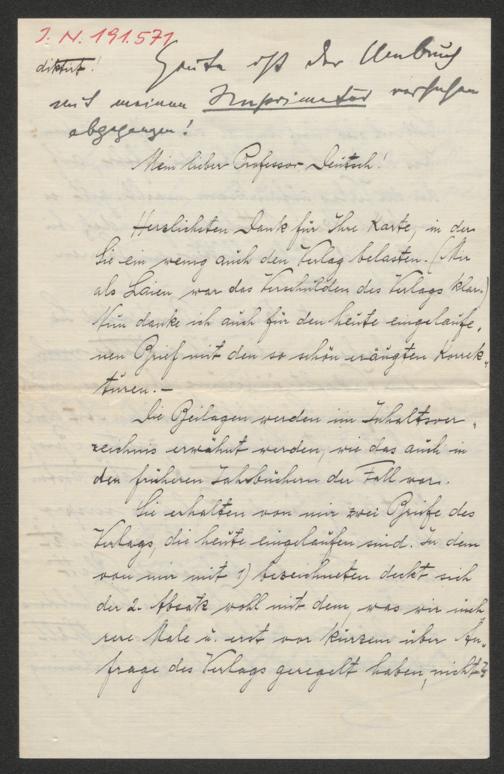 J. N. 191.571
diktat! Heute ist der Umbruch
mit meinem Imprimatur versehen
abgegangen!
Mein lieber Professor Deutsch!
Herzlichsten Dank für Ihre Karte, in der
Sie ein wenig auch den Verlag belasten. (Mir
als Laien war das Verschulden des Verlags klar.)
Nun danke ich auch für den heute eingelaufe-
nen Brief mit den so schön eräugten Korrek-
turen. –
Die Beilagen werden im Inhaltsver-
zeichnis erwähnt werden, wie das auch in
den früheren Jahrbüchern der Fall war.
Sie erhalten von mir zwei Briefe des
Verlags, die heute eingelaufen sind. In dem
von mir mit 1) bezeichneten deckt sich
der 2. Absatz wohl mit dem, was wir meh-
rere Male u. erst vor kurzem über An-
frage des Verlags geregelt haben, nicht?